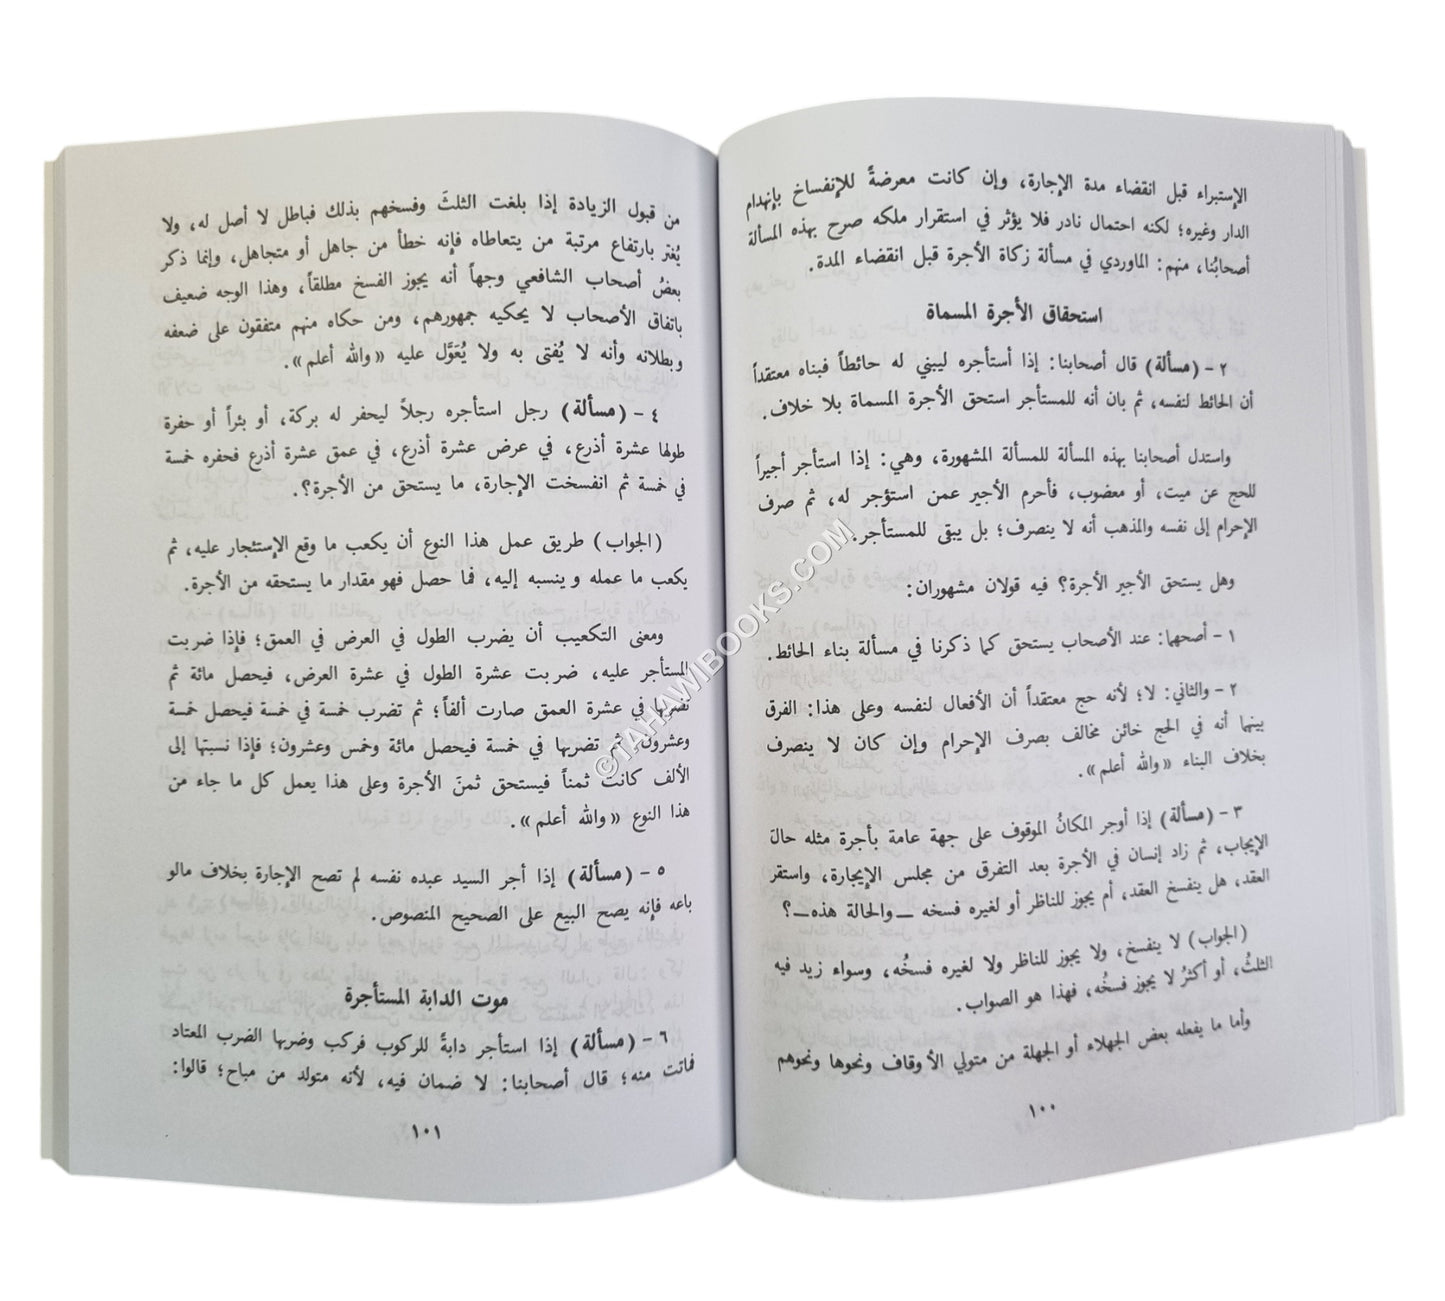 الإستبراء قبل انقضاء مدة الإجارة، وإن كانت معرضةً للإنفساخ بإنهدام
الدار وغيره؛ لكنه احتمال نادر فلا يؤثر في استقرار ملكه صرح بهذه المسألة
أصحابُنا، منهم: الماوردي في مسألة زكاة الأجرة قبل انقضاء المدة.
استحقاق الأجرة المسماة
٢ - (مسألة) قال أصحابنا: إذا أستأجره ليبني له حائطاً فبناه معتقداً
أن الحائط لنفسه، ثم بان أنه للمستأجر استحق الأجرة المسماة بلا خلاف.
واستدل أصحابنا بهذه المسألة للمسألة المشهورة، وهي: إذا استأجر أجيراً
للحج عن ميت، أو معضوب، فأحرم الأجير عمن استؤجر له، ثم صرف
الإحرام إلى نفسه والمذهب أنه لا ينصرف؛ بل يبقى للمستأجر.
وهل يستحق الأجير الأجرة؟ فيه قولان مشهوران:
١ - أصحها: عند الأصحاب يستحق كما ذكرنا في مسألة بناء الحائط.
٢ - والثاني: لا؛ لأنه حج معتقداً أن الأفعال لنفسه وعلى هذا: الفرق
بينهما أنه في الحج خائن مخالف بصرف الإحرام وإن كان لا ينصرف
بخلاف البناء «والله أعلم».
٣ - (مسألة) إذا أوجر المكانُ الموقوف على جهة عامة بأجرة مثله حالَ
الإيجاب، ثم زاد إنسان في الأجرة بعد التفرق من مجلس الإيجارة، واستقر
العقد، هل ينفسخ العقد، أم يجوز للناظر أو لغيره فسخه ــ والحالة هذه ــ؟
(الجواب) لا ينفسخ، ولا يجوز للناظر ولا لغيره فسخُه، وسواء زيد فيه
الثلثُ، أو أكثرُ لا يجوز فسخُه، فهذا هو الصواب.
وأما ما يفعله بعض الجهلاء أو الجهلة من متولي الأوقاف ونحوها ونحوهم
١٠٠
من قبول الزيادة إذا بلغت الثلثَ وفسخهم بذلك فباطل لا أصل له، ولا
يُغتر بارتفاع مرتبة من يتعاطاه فإنه خطأ من جاهل أو متجاهل، وإنما ذكر
بعضُ أصحاب الشافعي وجهاً أنه يجوز الفسخ مطلقاً، وهذا الوجه ضعيف
باتفاق الأصحاب لا يحكيه جمهورهم، ومن حكاه منهم متفقون على ضعفه
وبطلانه وأنه لا يُفتى به ولا يُعَوَّل عليه «والله أعلم».
٤ - (مسألة) رجل استأجره رجلاً ليحفر له بركة، أو بئراً أو حفرة
طولها عشرة أذرع، في عرض عشرة أذرع، في عمق عشرة أذرع فحفره خمسة
في خمسة ثم انفسخت الإجارة، ما يستحق من الأجرة؟.
(الجواب) طريق عمل هذا النوع أن يكعب ما وقع الإستئجار عليه، ثم
يكعب ما عمله وينسبه إليه، فما حصل فهو مقدار ما يستحقه من الأجرة.
ومعنى التكعيب أن يضرب الطول في العرض في العمق؛ فإذا ضربت
المستأجر عليه، ضربت عشرة الطول في عشرة العرض، فيحصل مائة ثم
تضربها في عشرة العمق صارت ألفاً؛ ثم تضرب خمسة في خمسة فيحصل خمسة
وعشرون، ثم تضربها في خمسة فيحصل مائة وخمس وعشرون؛ فإذا نسبتها إلى
الألف كانت ثمناً فيستحق ثمنَ الأجرة وعلى هذا يعمل كل ما جاء من
هذا النوع «والله أعلم».
٥ - (مسألة) إذا أجر السيد عبده نفسه لم تصح الإجارة بخلاف مالو
باعه فإنه يصح البيع على الصحيح المنصوص.
موت الدابة المستأجرة
٦ - (مسألة) إذا استأجر دابةً للركوب فركب وضربها الضرب المعتاد
فماتت منه؛ قال أصحابنا: لا ضمان فيه، لأنه متولد من مباح؛ قالوا:
١٠١
©TAHAWIBOOKS.COM